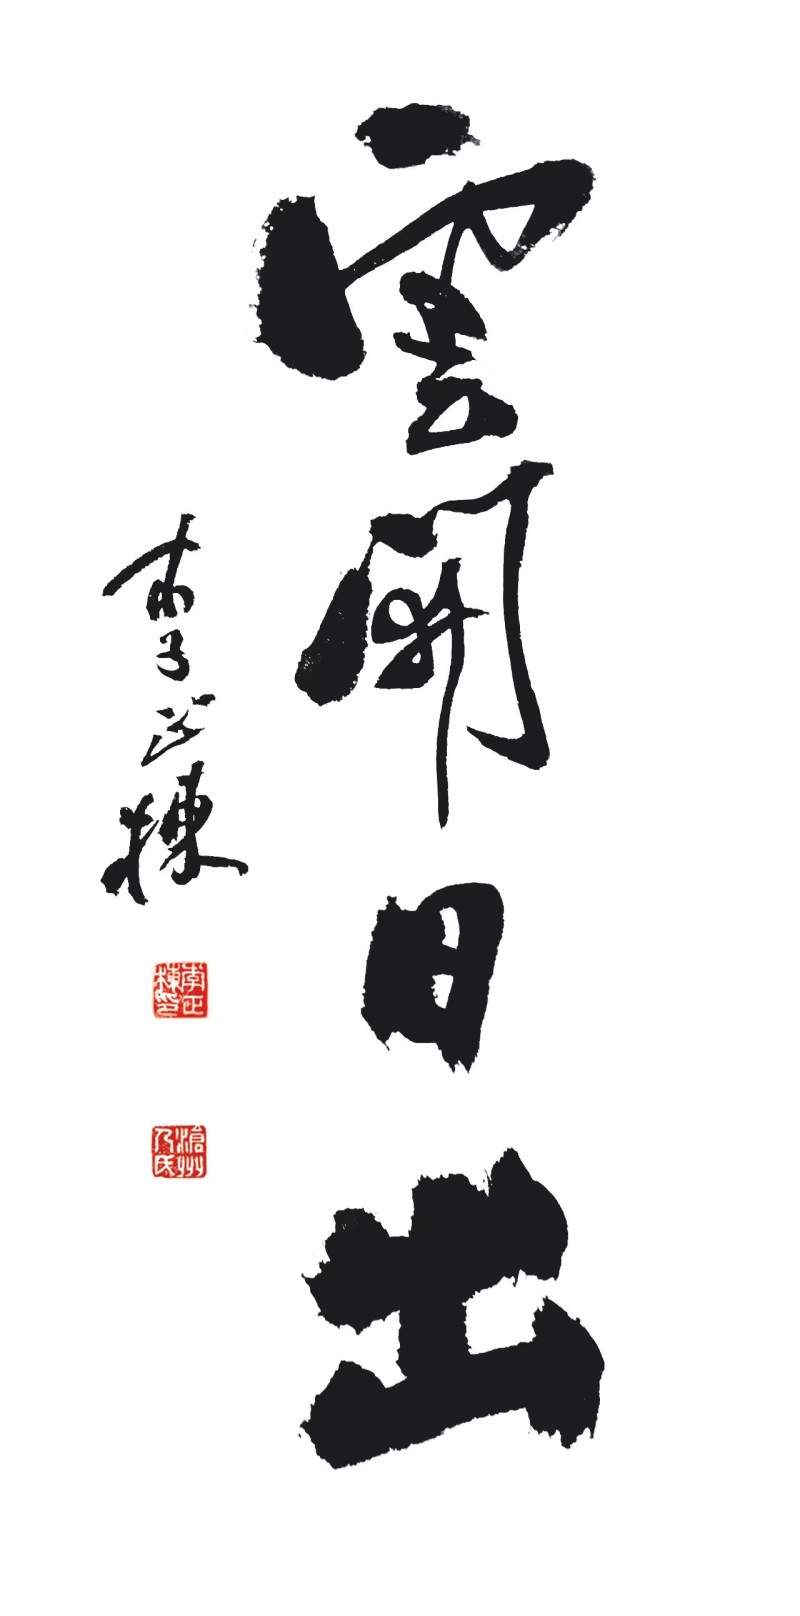 雲開日出
李正棟
李正棟印
滄州人氏